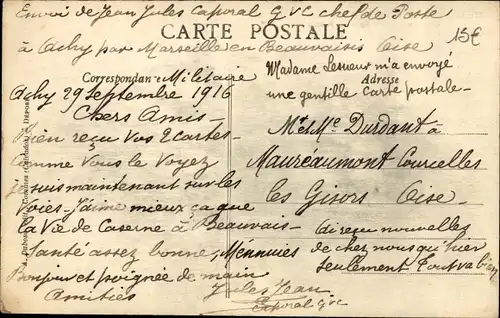 Envoi de Jean Jules Caporal GVC chef de Poste
15€
CARTE POSTALE
à Achy par Marseille en Beauvaisis Oise
Correspondance Militaire
Achy 29 Septembre 1916
Chers Amis
Bien reçu Vos 2 Cartes
Comme Vous le Voyez
je suis maintenant sur les
Voies. J'aime mieux ça que
la Vie de Caserne à Beauvais
Santé assez bonne, M'ennuies
Bonjour et poignée de main
Amitiés
Jules Jean
Caporal GVC
Madame Lesueur m'a envoyé
Adresse
une gentille Carte postale
Mr et Me Durdant à
Mauréaumont Courcelles
les Gisors Oise
Ai reçu nouvelles
de chez nous qu'hier
seulement Tout va bien